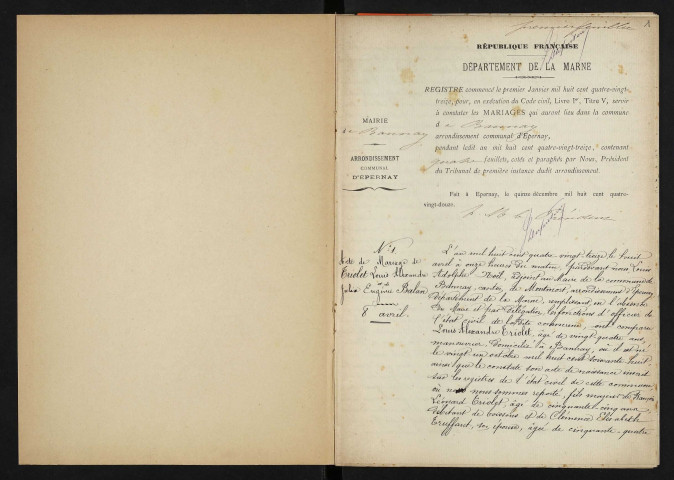 premier feuillet
RÉPUBLIQUE FRANÇAISE
DÉPARTEMENT DE LA MARNE
REGISTRE commencé le premier Janvier mil huit cent quatre-vingt-
treize, pour, en exécution du Code civil, Livre Ier, Titre V, servir
à constater les MARIAGES qui auront lieu dans la commune
d e Bannay
arrondissement communal d'Epernay,
pendant ledit an mil huit cent quatre-vingt-treize, contenant
quatre feuillets, cotés et paraphés par Nous, Président
du Tribunal de première instance dudit arrondissement.
Fait à Epernay, le quinze décembre mil huit cent quatre-
vingt-douze.
MAIRIE
de Bannay
ARRONDISSEMENT
COMMUNAL
D'EPERNAY
N° 1
Acte de Mariage de
Triolet Louis Alexandre
Eugénie Balan
8 avril.
L'an mil huit cent quatre-vingt-treize le huit
avril à onze heures du matin, Pardevant nous Louis
Adolphe Noël, adjoint au Maire de la commune de
Bannay, canton de Montmort, arrondissement d'Epernay,
département de la Marne, remplissant en l'absence
du Maire et par délégation, les fonctions d'officier de
l'état civil de ladite commune, ont comparu
Louis Alexandre Triolet, âgé de vingt-quatre ans,
manouvrier, domicilié à Bannay, où il est né
le vingt un octobre mil huit cent soixante huit
ainsi que le constate son acte de naissance inscrit
sur les registres de l'état civil de cette commune
où nous nous sommes reporté, fils majeur de François
Léonard Triolet, âgé de cinquante cinq ans,
débitant de boissons, & de Clémence Elisabeth
Truffaut, son épouse, âgée de cinquante-quatre